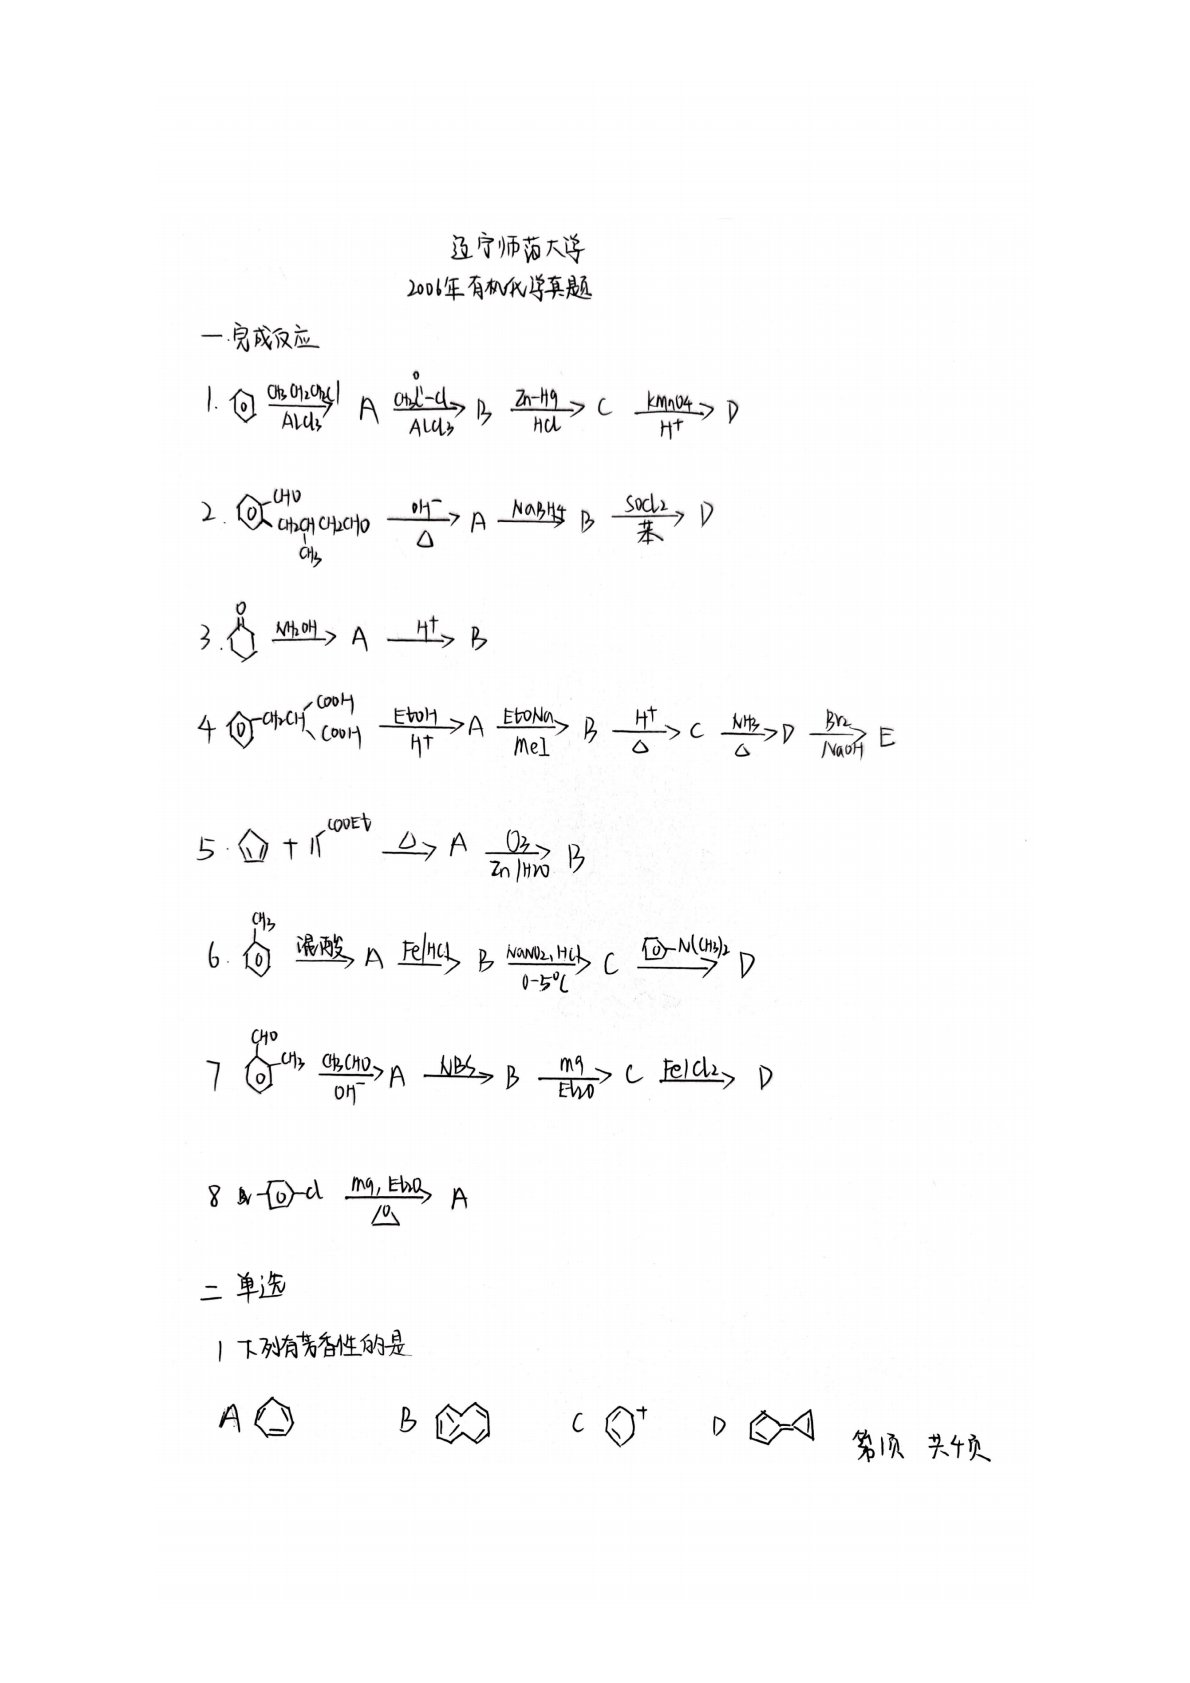 辽宁师范大学
2006年有机化学真题
一.完成反应
1. CH3CH2CH2Cl AlCl3 A CH3C-Cl O AlCl3 B Zn-Hg HCl C KMnO4 H+ D
2. CHO CH2CHCH2CHO CH3 OH- △ A NaBH4 B SOCl2 苯 D
3. O NH2OH A H+ B
4 CH2CH COOH COOH EtOH H+ A EtONa MeI B H+ △ C NH3 △ D Br2 NaOH E
5. + COOEt △ A O3 Zn/H2O B
6. CH3 混酸 A Fe/HCl B NaNO2, HCl 0-5℃ C N(CH3)2 D
7 CHO CH3 CH3CHO OH- A NBS B Mg Et2O C Fe/Cl2 D
8 Br Cl Mg, Et2O O A
二 单选
1 下列有芳香性的是
A B C + D
第1页 共4页